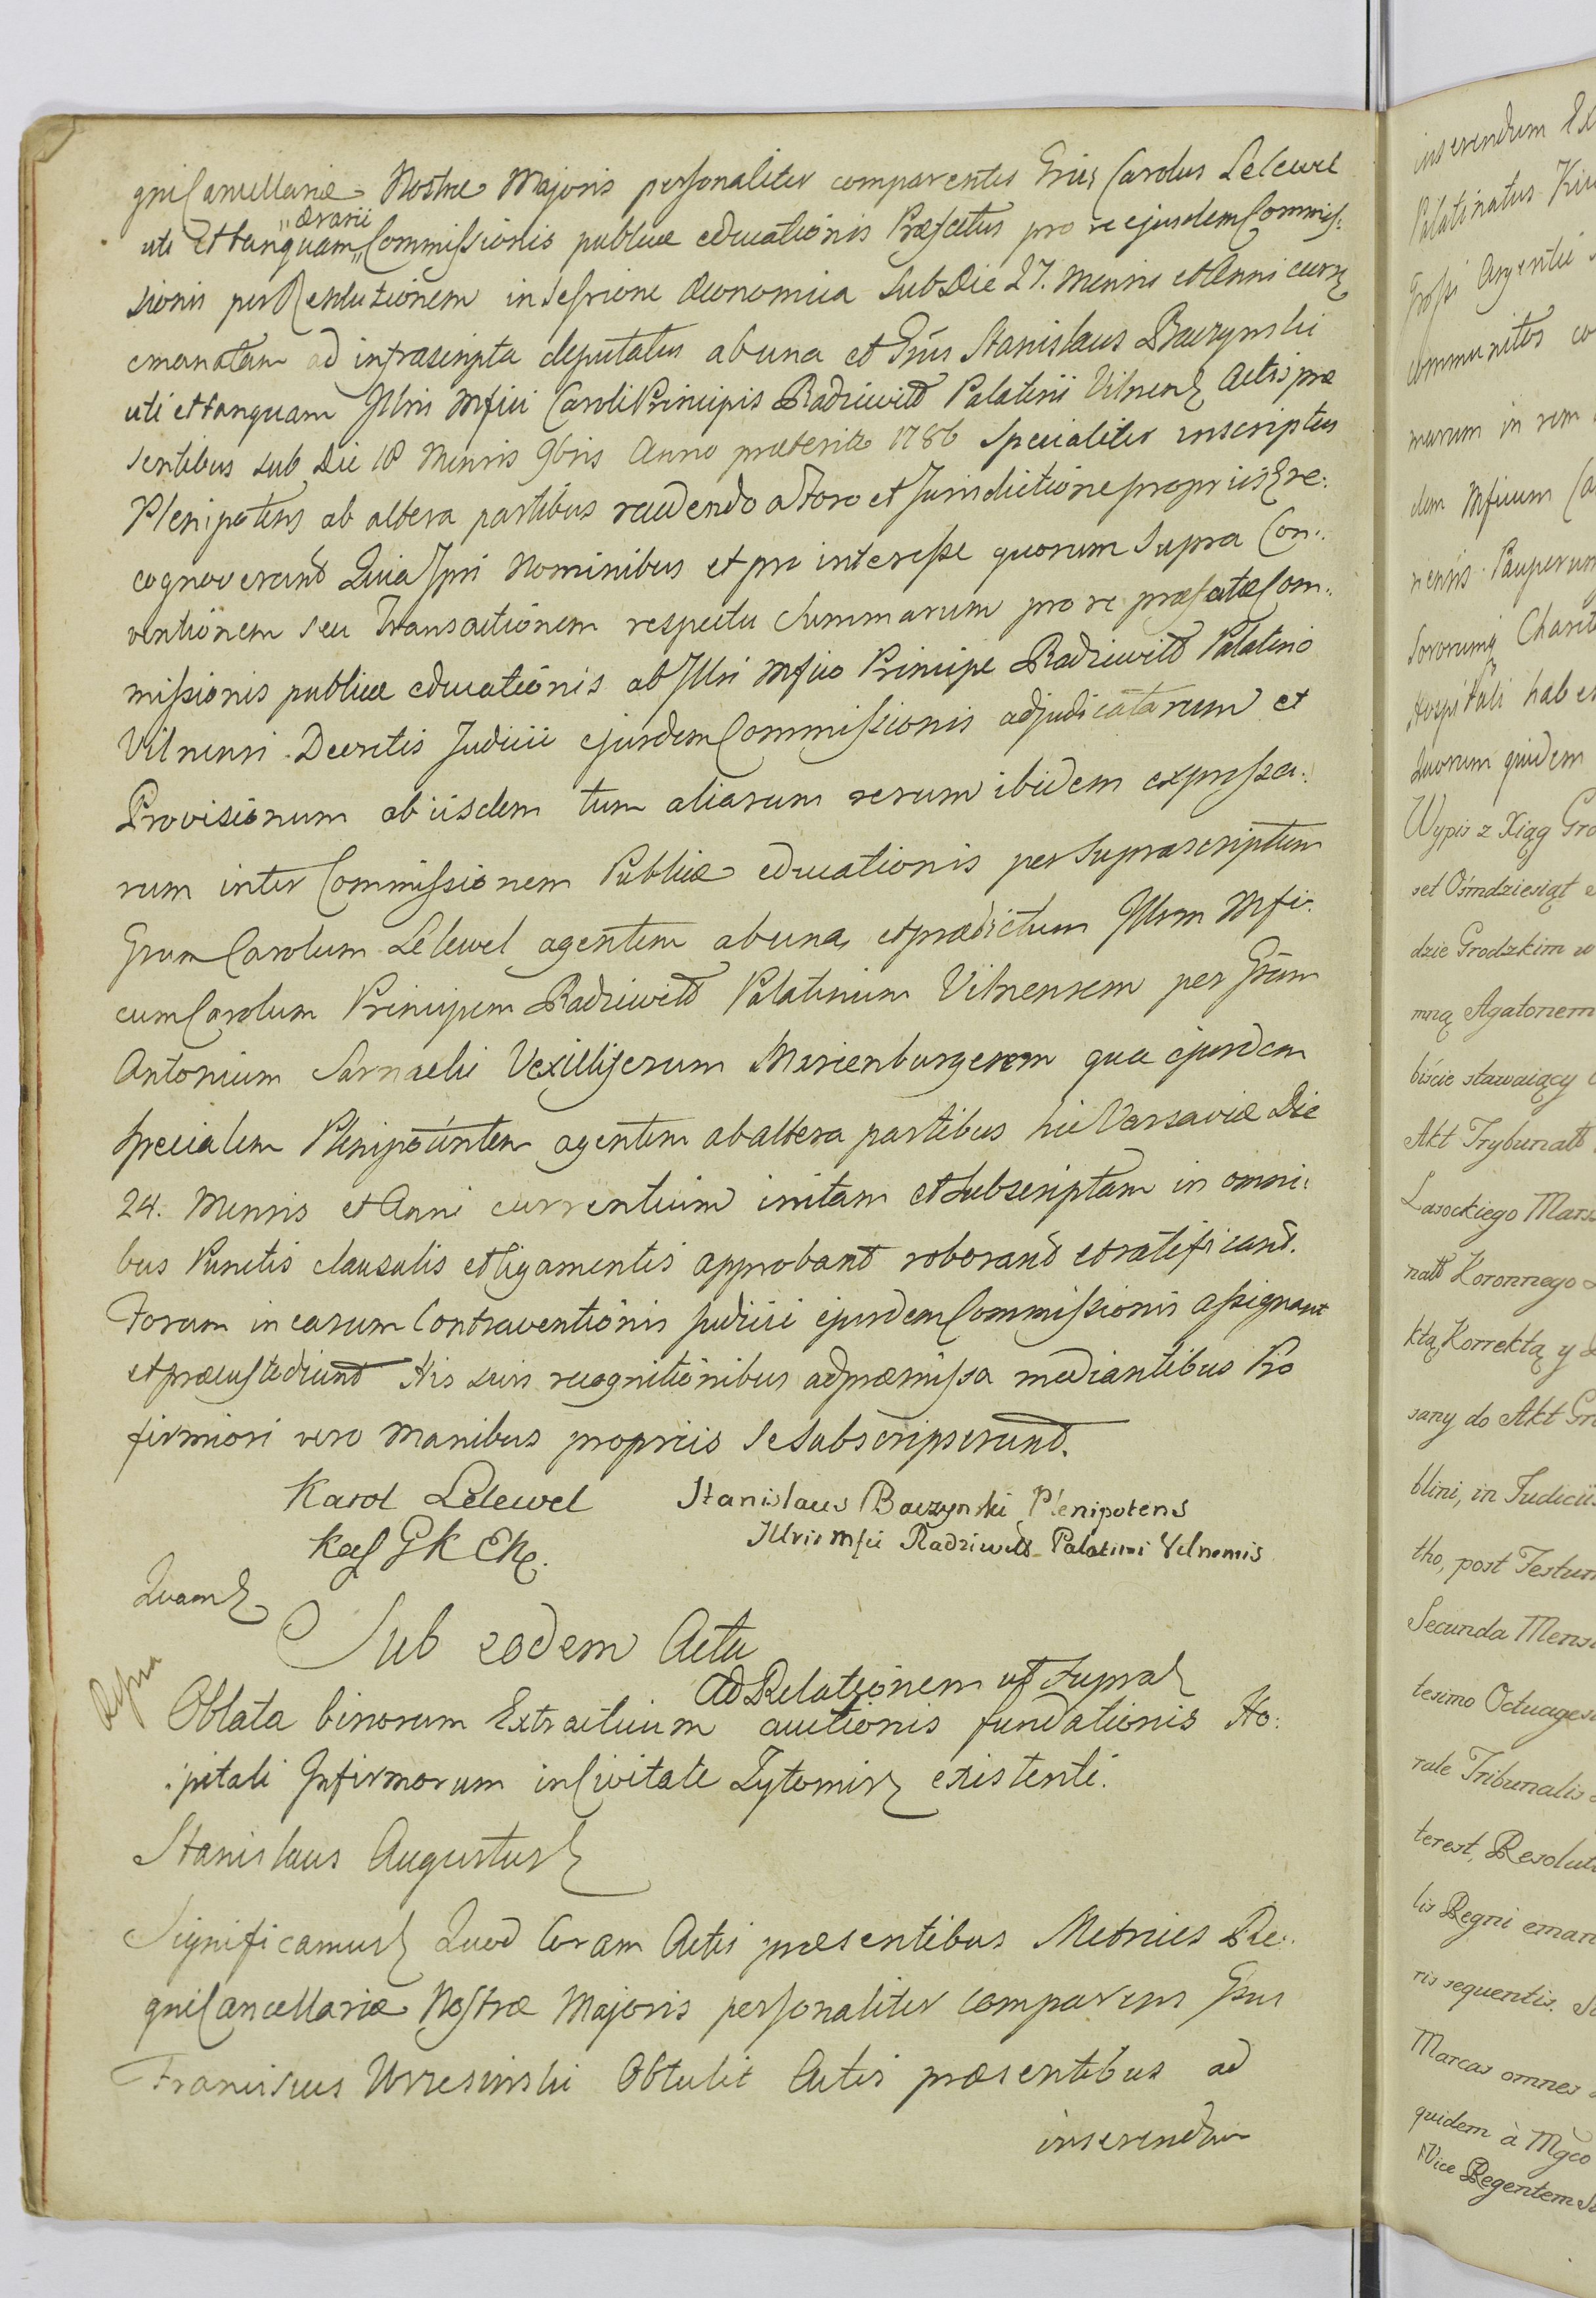 gni Cancellariæ Nostræ Majoris personaliter comparentes Grūs Carolus Lelewel
uti Et tanquam "ærarii" Commissionis publicæ educationis Præfectus pro re ejusdem Commis:
sionis per Resolutionem in Sessione Œconomica Sub Die 27. Mensis et Anni curr
emanatam ad infrascripta deputatus ab una et Grūs Stanislaus Baczynski
uti et tanquam Illris Mfici Caroli Principis Radziwiłł Palatini Vilnen Actis præ
sentibus sub Die 18 Mensis 9bris Anno præterito 1786 Specialiter inscriptus
Plenipotens ab altera partibus recedendo a Foro et Jurisdictione propriis re:
cognoverunt Quia Ipsi Nominibus et pro interesse quorum Supra Con:
ventionem seu Transactionem respectu Summarum pro re præfatæ Com:
missionis publicæ educationis ab Illri Mfico Principe Radziwiłł Palatino
Vilnensi Decretis Judicii ejusdem Commissionis adjudicatarum et
Provisionum ab iisdem tum aliarum rerum ibidem expressa:
rum inter Commissionem Publicæ educationis per Suprascriptum
Grum Carolum Lelewel agentem ab una, et prædictum Illrm Mfi:
cum Carolum Principem Radziwiłł Palatinum Vilnensem per Grum
Antonium Sarnacki Vexilliferum Merienburgensem qua ejusdem
Specialem Plenipotentem agentem ab altera partibus hic Varsaviæ Die
24. Mensis et Anni currentium initam et Subscriptam in omni:
bus Punctis clausulis et ligamentis approbant roborant et ratificant.
Forum in casum Contraventionis Judicii ejusdem Commissionis assignant
et præcustodiunt His suis recognitionibus ad præmissa mediantibus Pro
firmiori vero Manibus propriis Se Subscripserunt.
Karol Lelewel Stanislaus Baczynski Plenipotens
Kas G K EN. Illris Mfici Radziwiłł Palatini Vilnensis
Quam
Sub eodem Actu
Ad Relationem ut Supra
Oblata binorum Extractuum auctionis fundationis Ho:
:pitali Infirmorum in Civitate Zytomir existenti.
Stanislaus Augustus
Significamus Quod Coram Actis præsentibus Metrices Re:
gni Cancellariæ Nostræ Majoris personaliter comparens Grus
Franciscus Wrzesinski Obtulit Actis præsentibus ad
inserendum
inserendum
Palatinatus
Grossi Argentei
communitos
marum in rem
dem Mficum
nensis Pauperum
Sororumq Charit
Hospitali hab
Quorum quidem
Wypis z Xiąg Gro
set Ośmdziesiąt
dzie Grodzkim w
mną Agatonem
biście stawaiący
Akt Trybunałł
Lasockiego Mars
nałł Koronnego
ktą, Korrektą y
sany do Akt Gr
blini, in Judiciis
tho, post Festum
Secunda Mens
tesimo Octuages
rale Tribunalis
terest, Resolut
lis Regni eman
ris sequentis.
Marcas omnes
quidem à Mgco
Vice Regentem